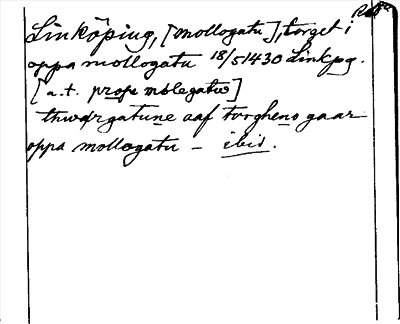 Linköping, [mollogatu], torget i
oppa mollogatu 18/5 1430 Linkpg.
[a.t. prope molegatw]
thwærgatune aaf torgheno gaar
oppa mollogatu – ibid.